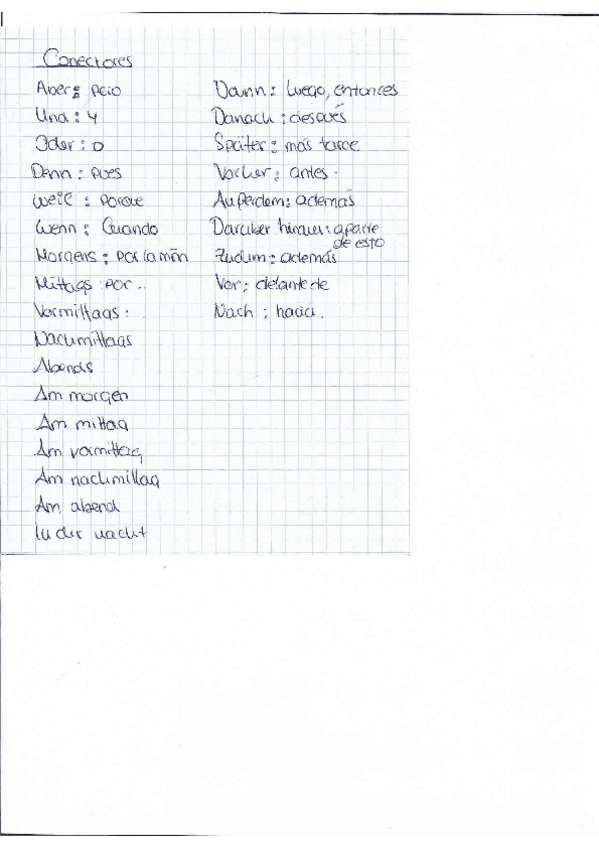 Conectores
Aber: pero
Und: y
Oder: o
Denn: pues
Weil: porque
Wenn: Cuando
Morgens: por la mñn
Mittags por..
Vormittags:
Nachmittags
Abends
Am morgen
Am mittag
Am vormittag
Am nachmittag
Am abend
In der nacht
Dann: luego, entonces
Danach: después
Später: más tarde
Vorher: antes.
Außerdem: además
Darüber hinaus: aparte
de esto
Zudem: además
Vor: delante de
Nach: hacia.